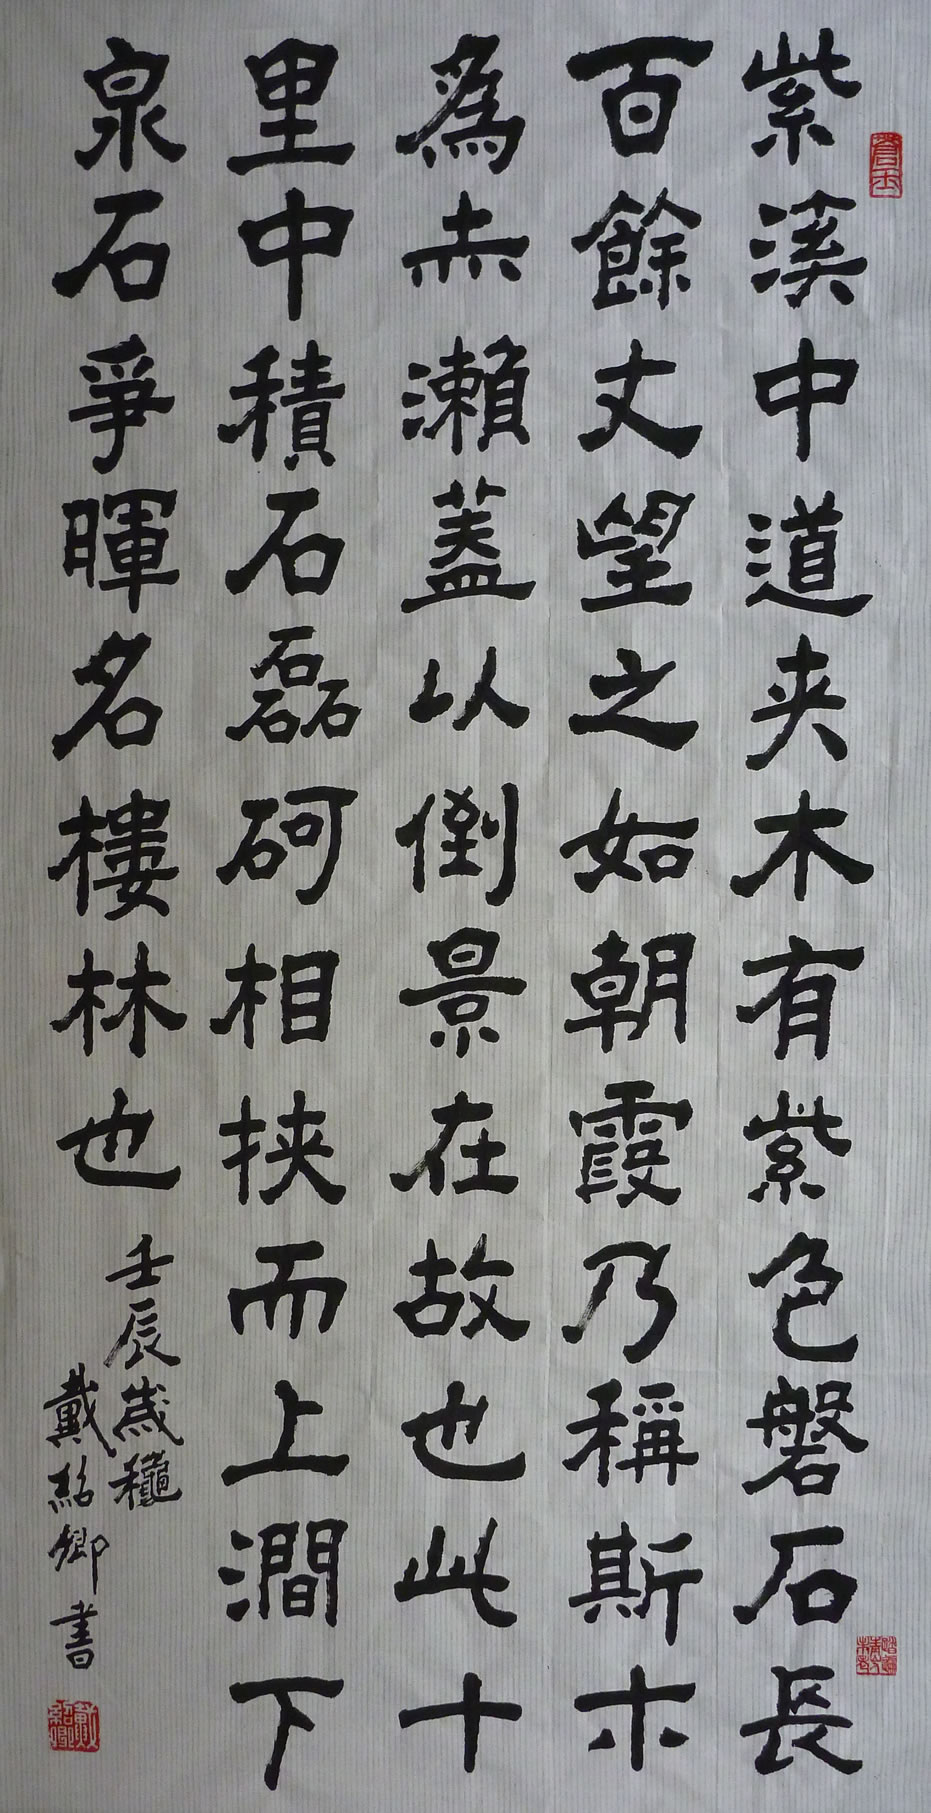 紫溪中道夹木有紫色磐石長
百餘丈望之如朝霞乃稱斯水
爲赤瀨蓋以倒景在故也此十
里中積石磊砢相挟而上澗下
泉石爭暉名樓林也
壬辰歲穐
戴紹卿書
戴紹卿